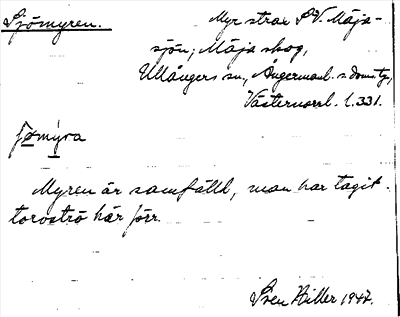 Sjömyren.
Myr strax SV. Mäja-
sjön; Mäja skog,
Ullångers sn, Ångermanl. s. domstg,
Västernorrl. l. 331.
Myren är samfälld, man har tagit
torvströ här förr.
Sven Hiller 1947.